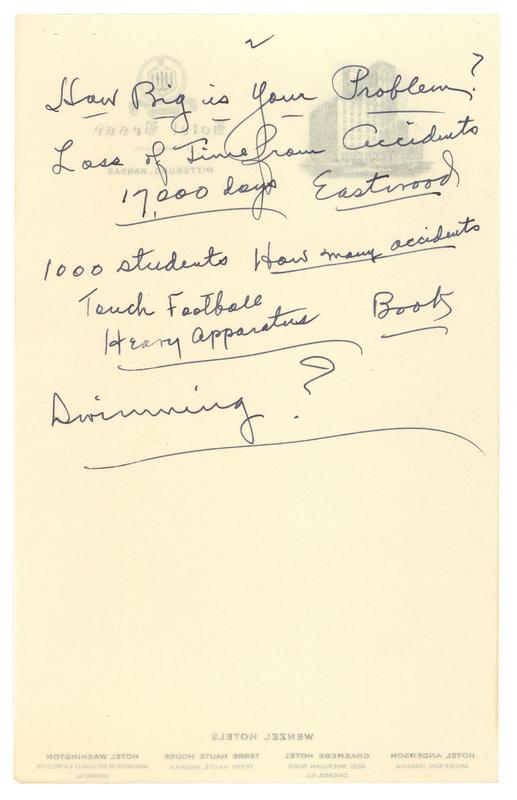 2
How Big is Your Problem?
Loss of Time From Accidents
17,000 days Eastwood
1000 students How many accidents
Touch Football
Heavy Apparatus Book
Swimming ?
PITTSBURG, KANSAS
WENZEL HOTELS
HOTEL WASHINGTON TERRE HAUTE HOUSE GRASMERE HOTEL HOTEL ANDERSON
TERRE HAUTE, INDIANA SHERIDAN ROAD ANDERSON, INDIANA
CHICAGO, ILL. CHICAGO, ILL.